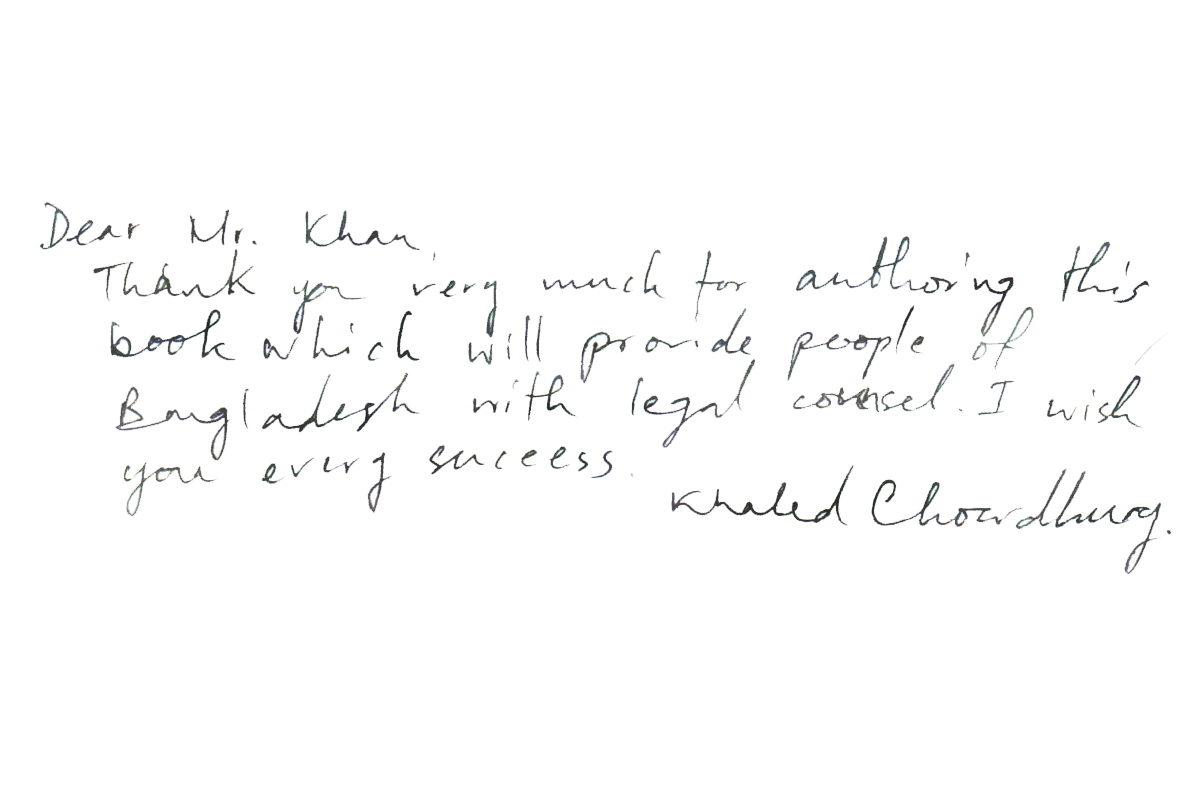 Dear Mr. Khan,
Thank you very much for authoring this
book which will provide people of
Bangladesh with legal counsel. I wish
you every success.
Khaled Chowdhury.